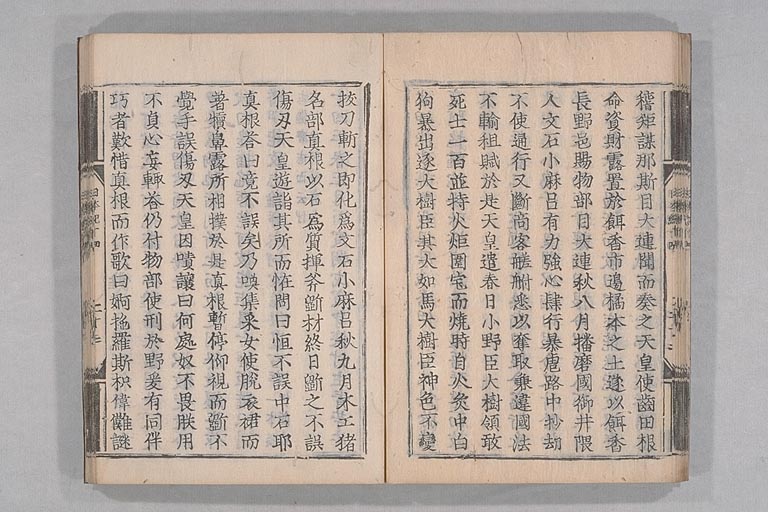 稽矩謀那斯目大連聞而奏之天皇使齒田根
命資財露置於餌香市邊橘本之土遂以餌香
長野邑賜物部目大連秋八月播磨國御井隈
人文石小麻呂有力強心肆行暴虐路中抄劫
不使通行又斷商客艖䑧悉以奪取兼違國法
不輸租賦於是天皇遣春日小野臣大樹領敢
死士一百並持火炬圍宅而燒時自火炎中白
狗暴出逐大樹臣其大如馬大樹臣神色不變
拔刀斬之即化爲文石小麻呂秋九月木工猪
名部真根以石爲質揮斧斲材終日斲之不誤
傷刃天皇遊詣其所而恠問曰恒不誤中石耶
真根荅曰竟不誤矣乃喚集采女使脫衣裙而
著犢鼻露所相撲於是真根暫停仰視而斲不
覺手誤傷刃天皇因嘖讓曰何處奴不畏朕用
不貞心妄輙荅仍付物部使刑於野爰有同伴
巧者歎惜真根而作歌曰婀拕羅斯枳偉儺謎